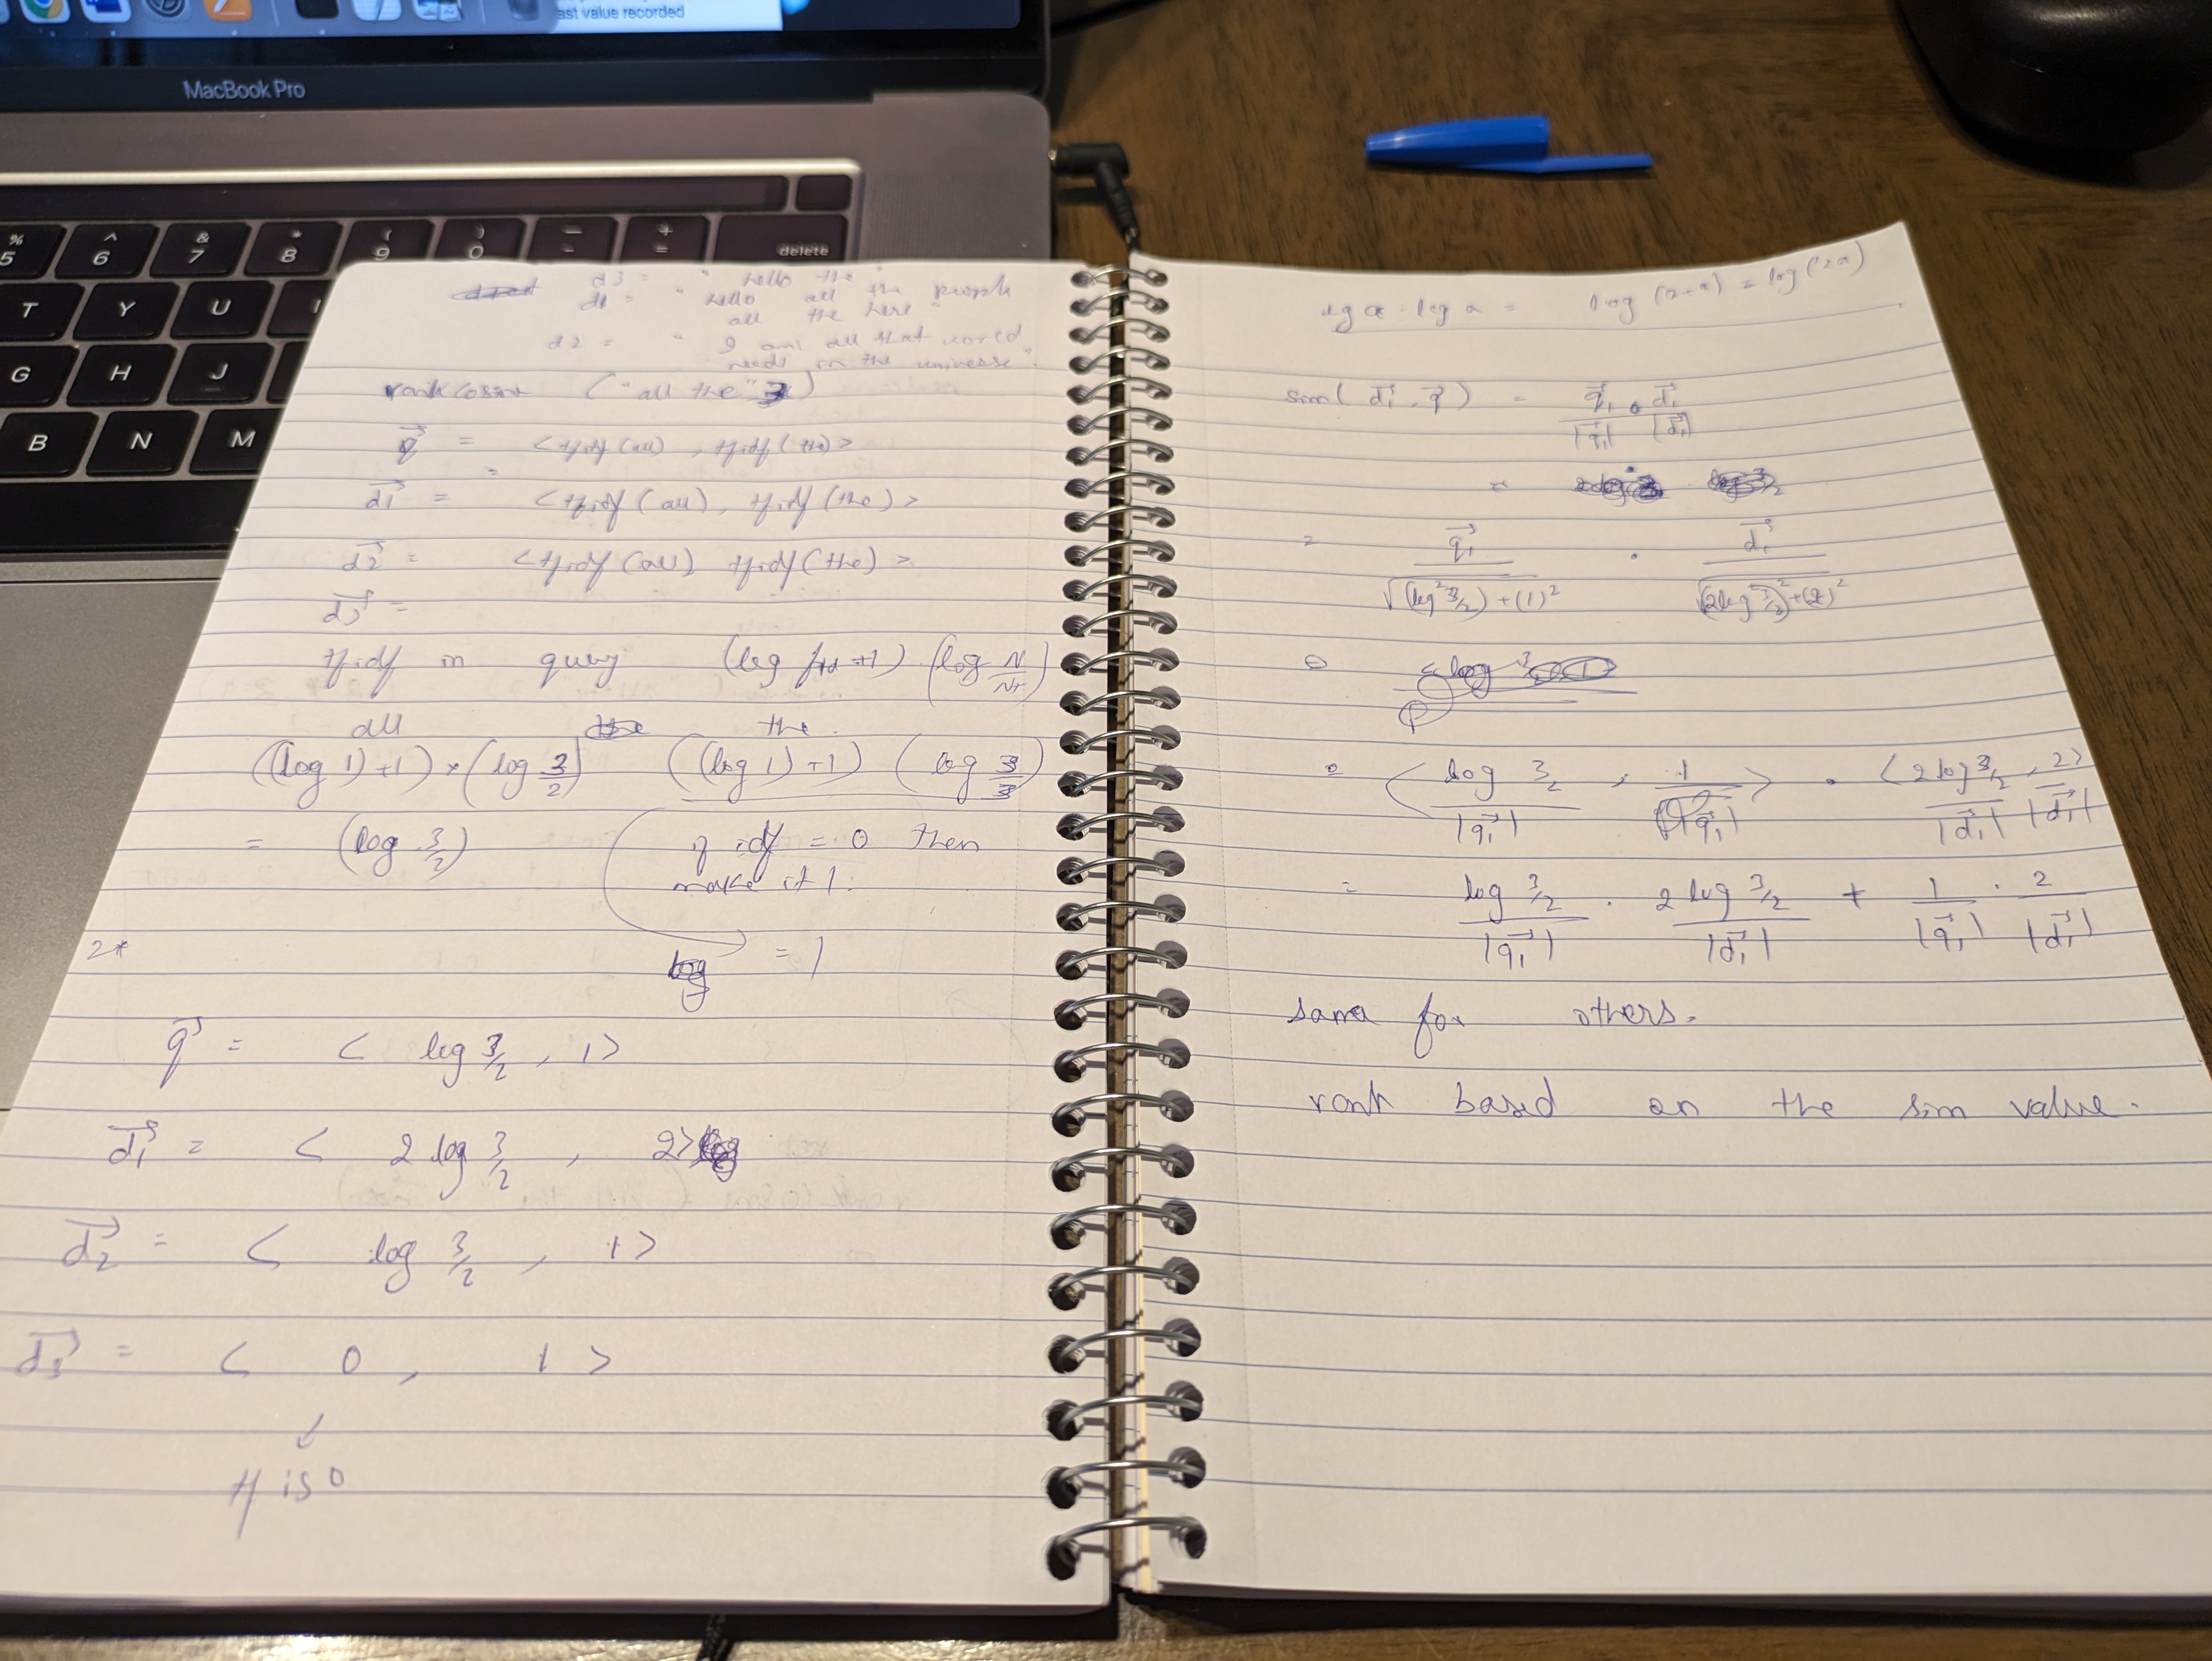 ast value recorded
MacBook Pro
% ^ & * ( ) _ +
5 6 7 8 9 0 - = delete
T Y U I
G H J
B N M
d3 = " hello the "
d1 = " hello all the people
all the here "
d2 = " I am all that world
needs in the universe".
rank cosine ("all the" )
q⃗ = <tfidf(all), tfidf(the)>
d1⃗ = <tfidf(all), tfidf(the)>
d2⃗ = <tfidf(all) tfidf(the)>
d3⃗ =
tfidf in query (log ftd +1) · (log N/Nt)
all the
((log 1)+1) × (log 3/2) ((log 1)+1) (log 3/3)
= (log 3/2) if idf = 0 then
make it 1.
2*
= 1
q⃗ = < log 3/2 , 1>
d1⃗ = < 2 log 3/2 , 2>
d2⃗ = < log 3/2 , 1>
d3⃗ = < 0 , 1>
tf is 0
log a · log a = = log(2a)
sim( d1⃗ , q⃗ ) = q1⃗ · d1⃗ / |q1⃗| |d1⃗|
= q1⃗ / √((log² 3/2) + (1)²) · d1⃗ / √((2log 3/2)² + (2)²)
= < log 3/2 / |q1⃗| , 1 / |q1⃗| > · < 2 log 3/2 / |d1⃗| , 2 / |d1⃗| >
= log 3/2 / |q1⃗| · 2 log 3/2 / |d1⃗| + 1 / |q1⃗| · 2 / |d1⃗|
same for others.
rank based on the sim value.